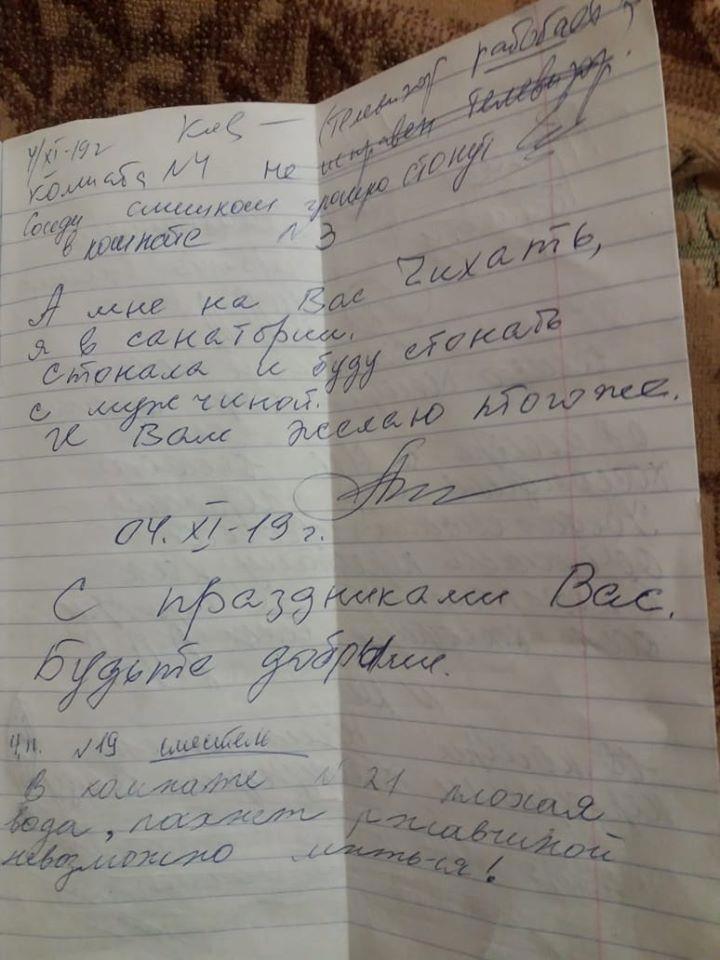 (Телевизор работает)
4/XI-19г
комната №4 не исправен телевизор.
Соседи слишком громко стонут
в комнате №3
А мне на Вас чихать,
я в санатории.
Стонала и буду стонать
с мужчиной.
И Вам желаю тогоже.
04.XI-19г.
С праздниками Вас.
Будьте добрыми.
№19 смеситель
В комнате №21 плохая
вода, пахнет ржавчиной
невозможно мыться!